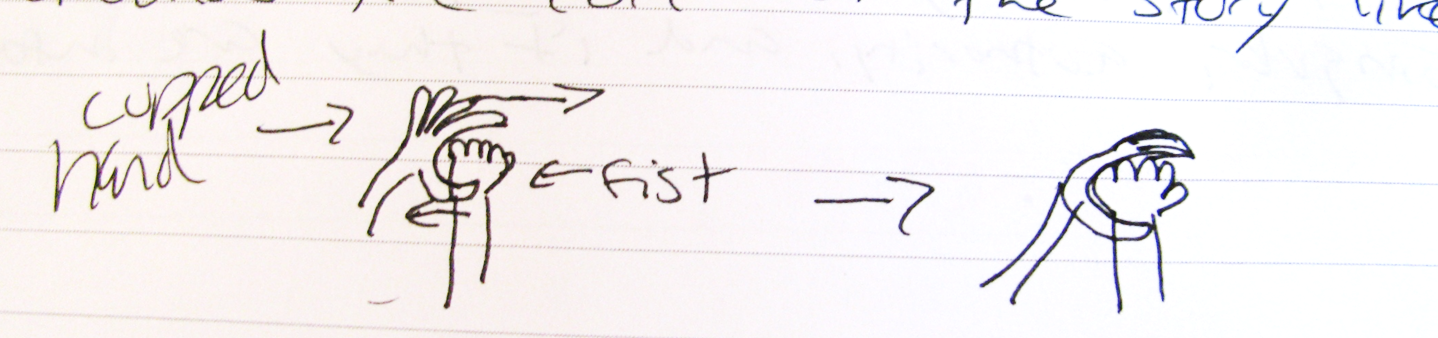 the story like
cupped
hand
fist